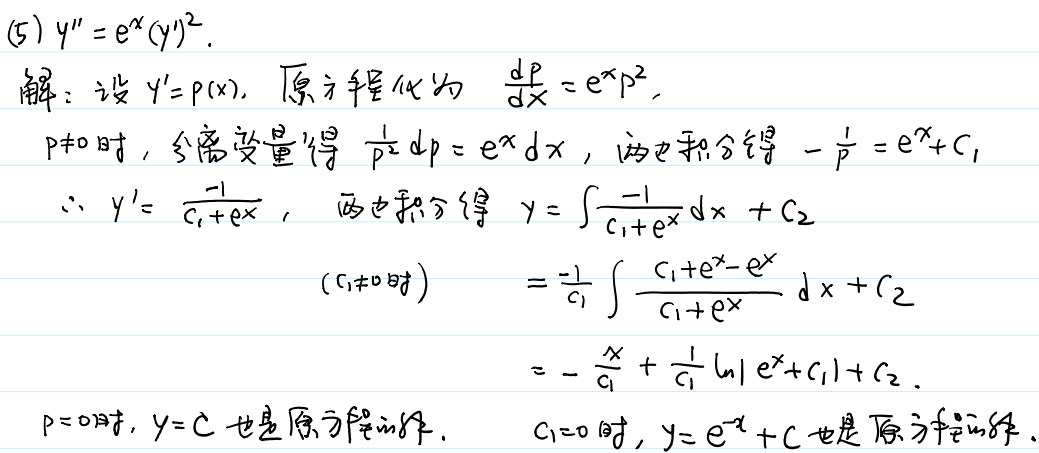 (5) y'' = eˣ(y')².
解：设 y'=p(x)，原方程化为 dp/dx = eˣp²，
p≠0时，分离变量得 1/p² dp = eˣ dx，两边积分得 -1/p = eˣ+C₁
∴ y' = -1/(C₁+eˣ)，两边积分得 y = ∫ -1/(C₁+eˣ) dx + C₂
(C₁≠0时) = -1/C₁ ∫ (C₁+eˣ-eˣ)/(C₁+eˣ) dx + C₂
= - x/C₁ + 1/C₁ ln|eˣ+C₁| + C₂.
p=0时，y=C 也是原方程的解. C₁=0时，y=e⁻ˣ+C 也是原方程的解.